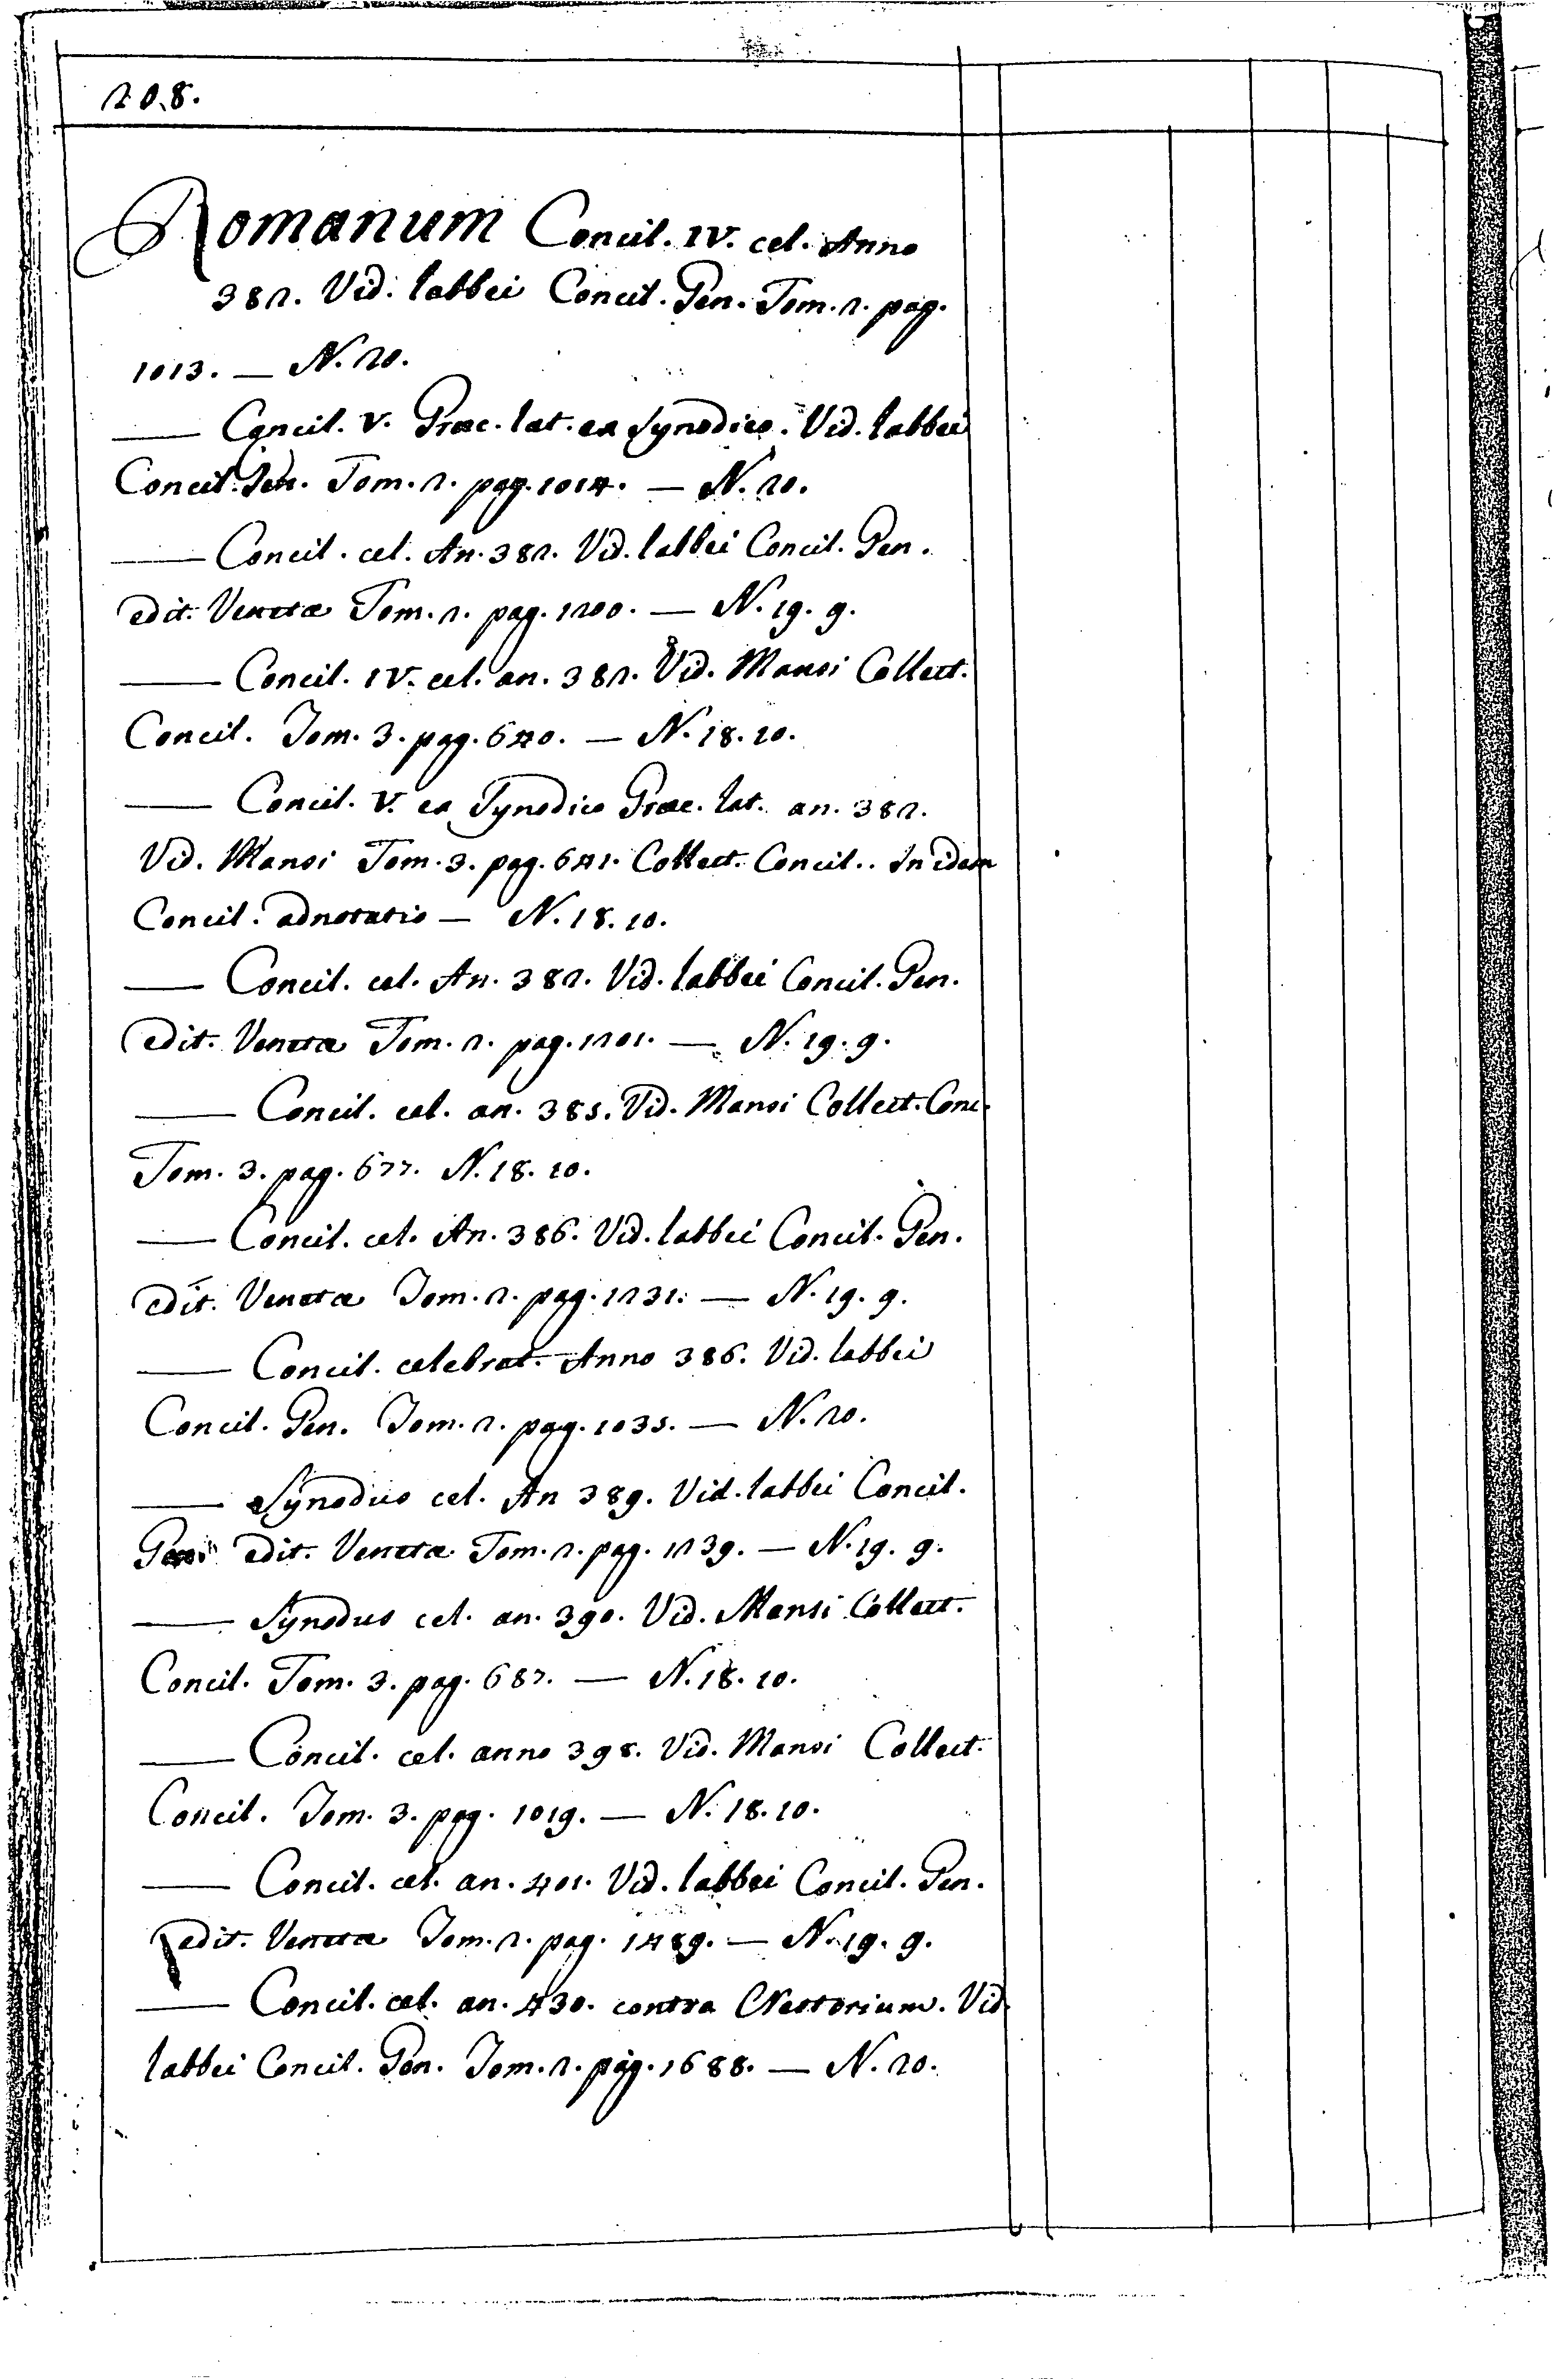 208.
Romanum Concil. IV. cel. Anno
382. Vid. Labbei Concil. Gen. Tom. 2. pag.
1013. — N. 20.
— Concil. V. Graec. lat. ex Synodico. Vid. Labbei
Concil. Gen. Tom. 2. pag. 1014. — N. 20.
— Concil. cel. An. 382. Vid. Labbei Concil. Gen.
edit. Venetae Tom. 2. pag. 1200. — N. 19. 9.
— Concil. IV. cel. an. 382. Vid. Mansi Collect.
Concil. Tom. 3. pag. 640. — N. 18. 10.
— Concil. V. ex Synodico Graec. Lat. an. 382.
Vid. Mansi Tom. 3. pag. 641. Collect. Concil.. In idem
Concil. adnotatio — N. 18. 10.
— Concil. cel. An. 382. Vid. Labbei Concil. Gen.
edit. Venetae Tom. 2. pag. 1201. — N. 19. 9.
— Concil. cel. an. 385. Vid. Mansi Collect. Conc.
Tom. 3. pag. 677. N. 18. 10.
— Concil. cel. An. 386. Vid. Labbei Concil. Gen.
edit. Venetae Tom. 2. pag. 1231. — N. 19. 9.
— Concil. celebrat. Anno 386. Vid. Labbei
Concil. Gen. Tom. 2. pag. 1035. — N. 20.
— Synodus cel. An 389. Vid. Labbei Concil.
Gen. edit. Venetae Tom. 2. pag. 1239. — N. 19. 9.
— Synodus cel. an. 390. Vid. Mansi Collect.
Concil. Tom. 3. pag. 687. — N. 18. 10.
— Concil. cel. anno 398. Vid. Mansi Collect.
Concil. Tom. 3. pag. 1019. — N. 18. 10.
— Concil. cel. an. 401. Vid. Labbei Concil. Gen.
edit. Venetae Tom. 2. pag. 1489. — N. 19. 9.
— Concil. cel. an. 430. contra Nestorium. Vid.
Labbei Concil. Gen. Tom. 2. pag. 1688. — N. 20.